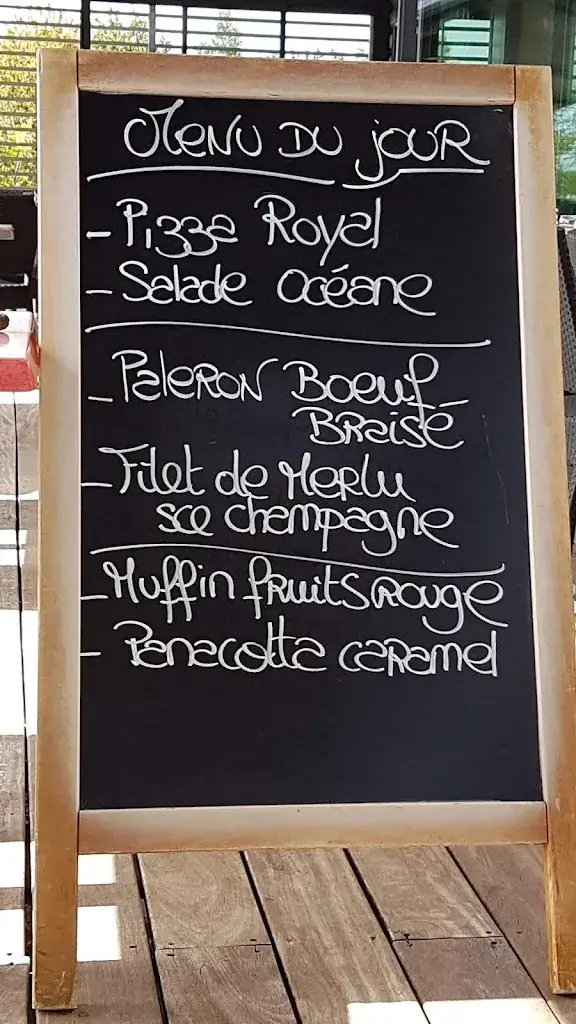 Menu du jour
- Pizza Royal
- Salade Océane
- Paleron Boeuf
Braisé
- Filet de Merlu
sce champagne
- Muffin fruits rouge
- Panacotta caramel